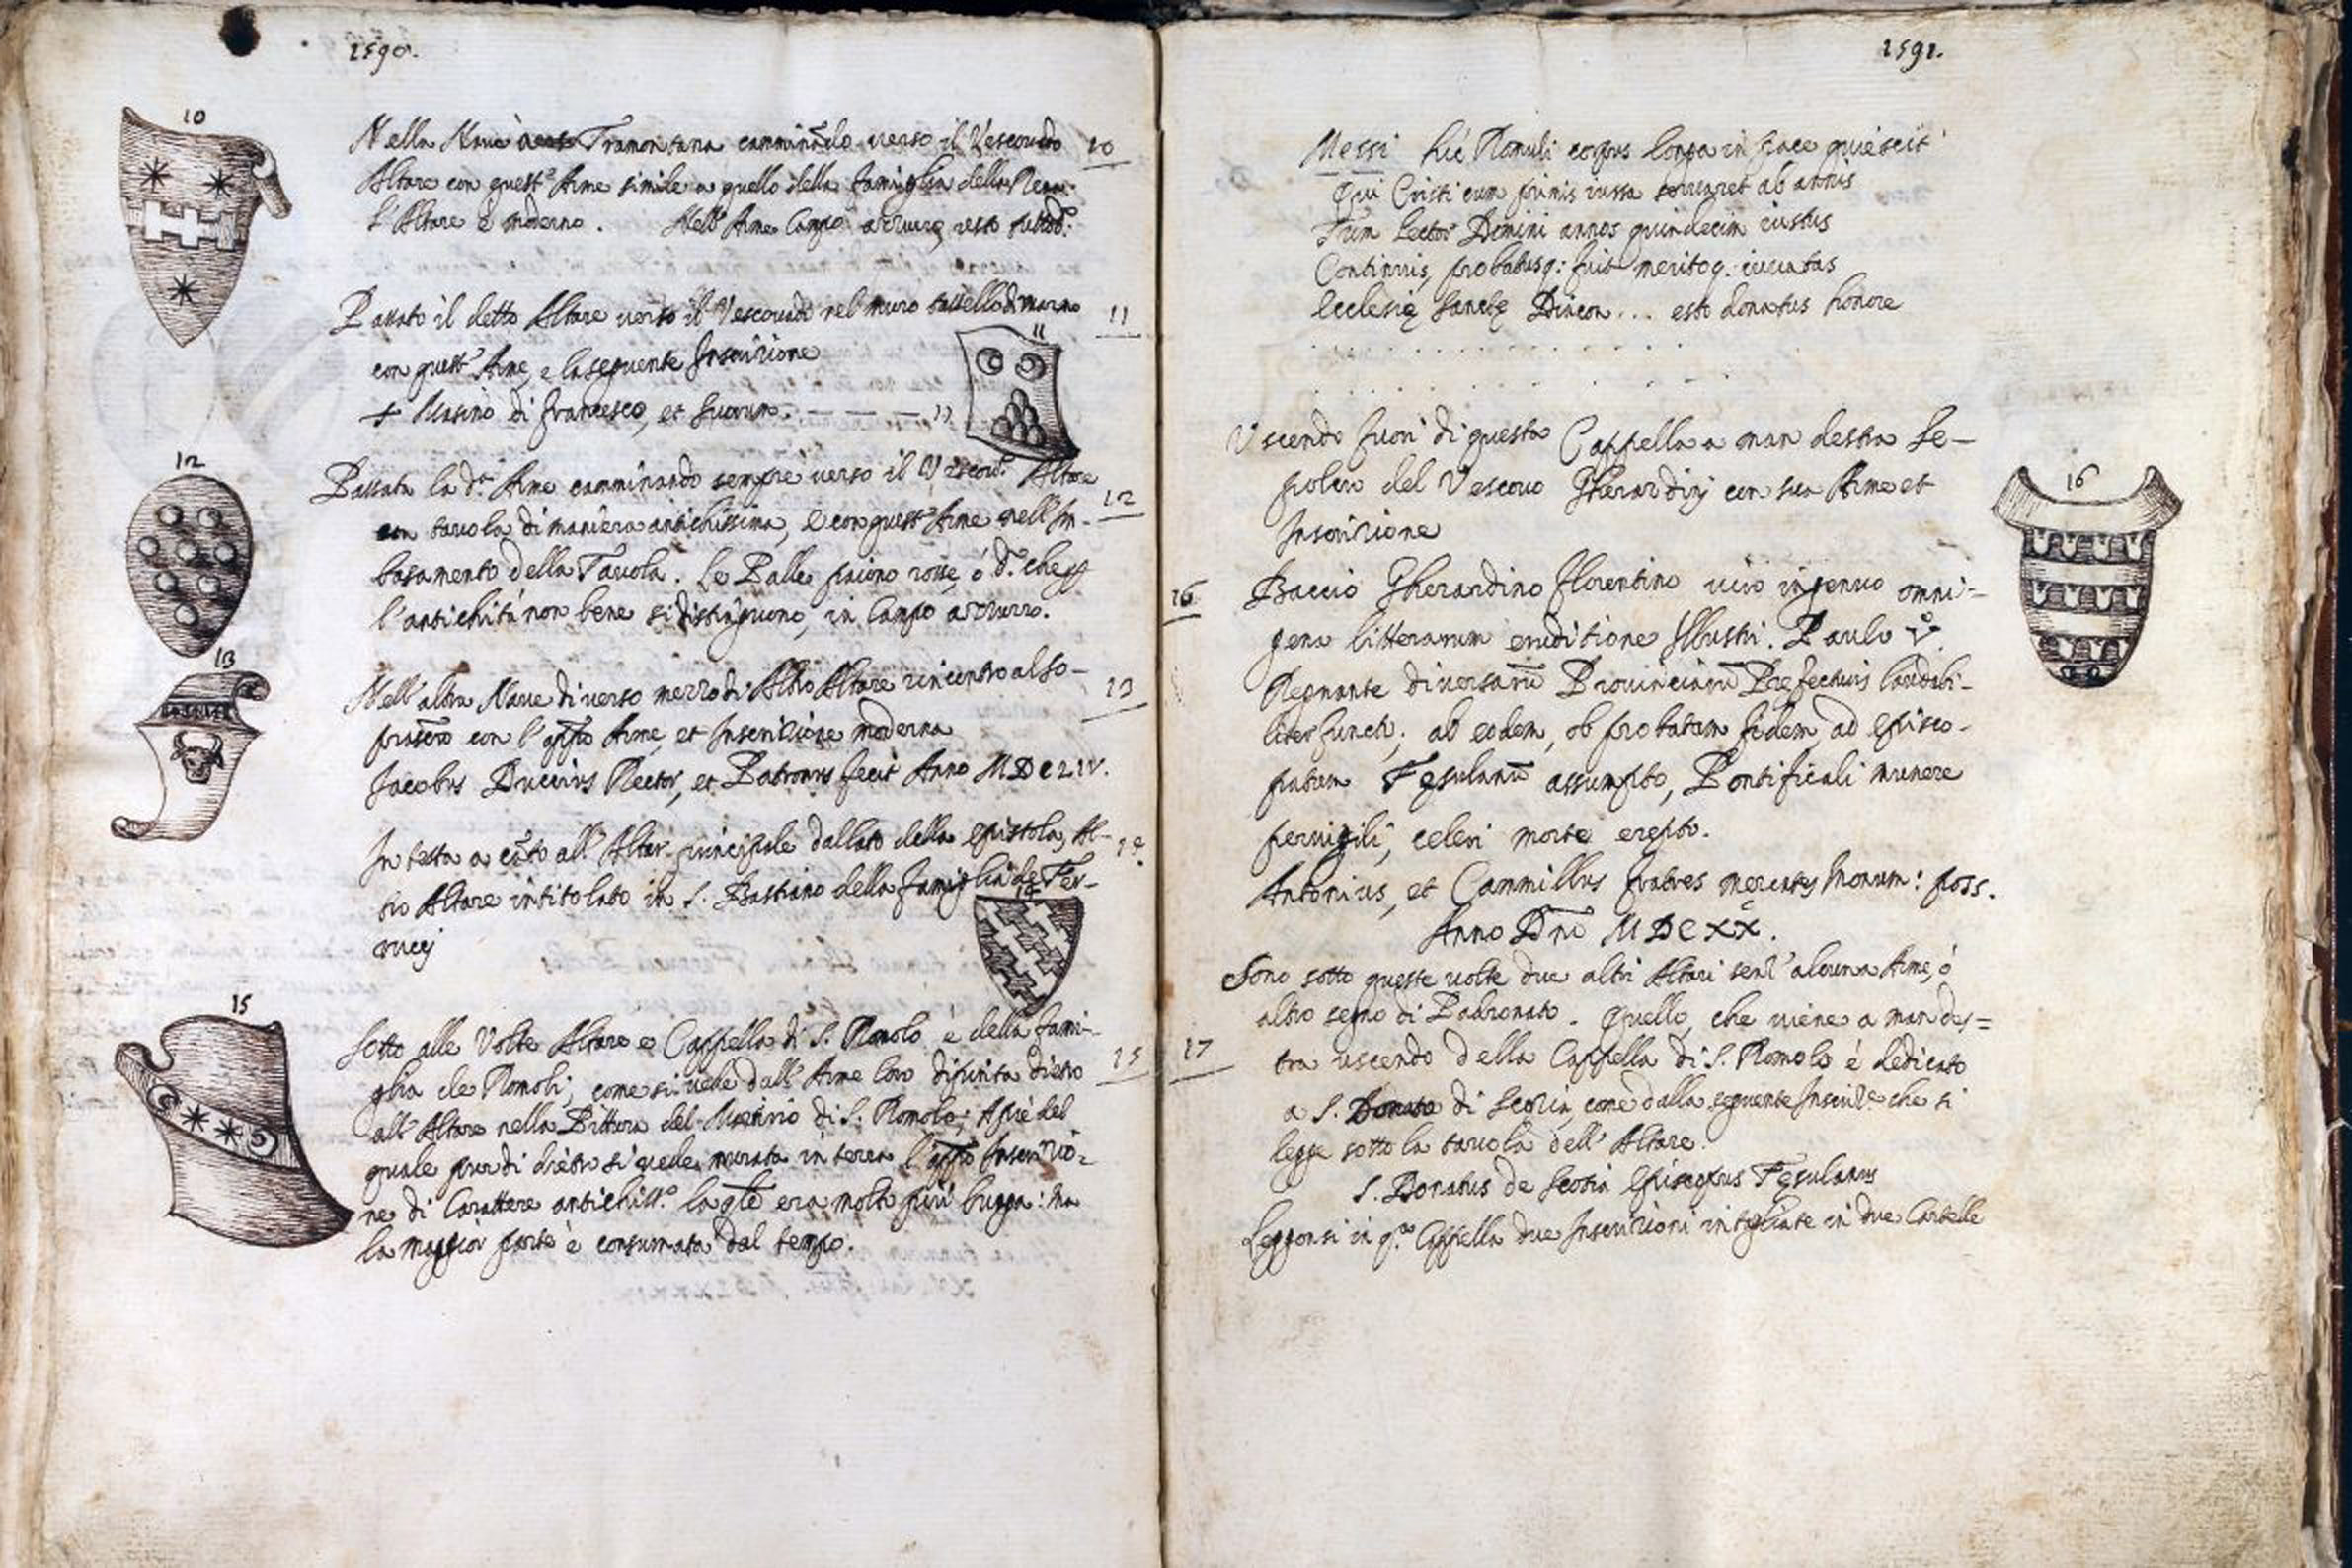 1590.
10
Nella Nave Tramontana camminando verso il Vescovado 10
Altare con quest'Arme simile a quello della famiglia della Nera.
L'Altare è moderno. Nell'Arme Campo azzurro, resto
Passato il detto Altare verso il Vescovado nel muro tassello di marmo 11
con quest'Arme, e la seguente Inscrizione 11
+ Masino di Francesco, et suorum. — — — —
12
Passata la d.ª Arme camminando sempre verso il Vescov.º Altare 12
con tavola di maniera antichissima, e con quest'Arme nell'Im-
basamento della Tavola. Le Palle paiono rosse, ó d'. che
l'antichità non bene si distinguono, in Campo azzurro.
13
Nell'altra Nave di verso mezzodì Altro Altare rincontro al so- 13
con l' Arme, et Inscrizione moderna
Jacobus Duccius Rector, et Patronus fecit Anno MDCLIV.
In testa a canto all'Altar principale dallato della Epistola, Al- 14
tro Altare intitolato in S. Bastiano della famiglia de Fer-
rucci
15
Sotto alle Volte Altare e Cappella di S. Romolo è della fami- 15
glia de Romoli, come si vede dall'Arme loro dipinta dietro
all'Altare nella Pittura del Martirio di S. Romolo; Apiè del
quale pur di dietro si vede murata in terra l' Inscrizio-
ne di Carattere antichiss.º la era molto più lunga: ma
la maggior parte è consumata dal tempo.
1591.
Messi hic Romuli corpus longa in pace quiescit
Qui Cristi cum primis iussa servaret ab annis
Tum Lector Domini annos quindecim iustus
Continuis, probatusq: fuit meritoq. iuvatas
Ecclesię Sanctę Diacon... esto donatus honore
. . . . . . . . . . . . . .
. . . . . . . . . . . . . .
Uscendo fuori di questa Cappella a man destra Se-
polcro del Vescovo Gherardini con sua Arme et
Inscrizione
16
16 Baccio Gherardino Florentino viro ingenuo omni-
gena litterarum eruditione Illustri. Paulo V.º
Regnante diversarū Provinciarū Pręfecturis laudabi-
liter funct; ab eodem, ob probatam fidem, ad Episco-
patum Fęsulanū assumpto, Pontificali munere
pervigili, celeri morte erepto.
Antonius, et Cammillus fratres męrentes monum: poss.
Anno Dnī MDCXX.
Sono sotto queste volte due altri Altari senz'alcuna Arme, ó
altro segno di Padronato. Quello, che viene a man des=
17 tra uscendo della Cappella di S. Romolo è dedicato
a S. Donato di Scozia, come dalla seguente Inscriz.e che si
legge sotto la tavola dell'Altare.
S. Donatus de Scotia Episcopus Fęsulanus
Leggonsi in q.ta Cappella due Inscrizioni intagliate in due Cartelle